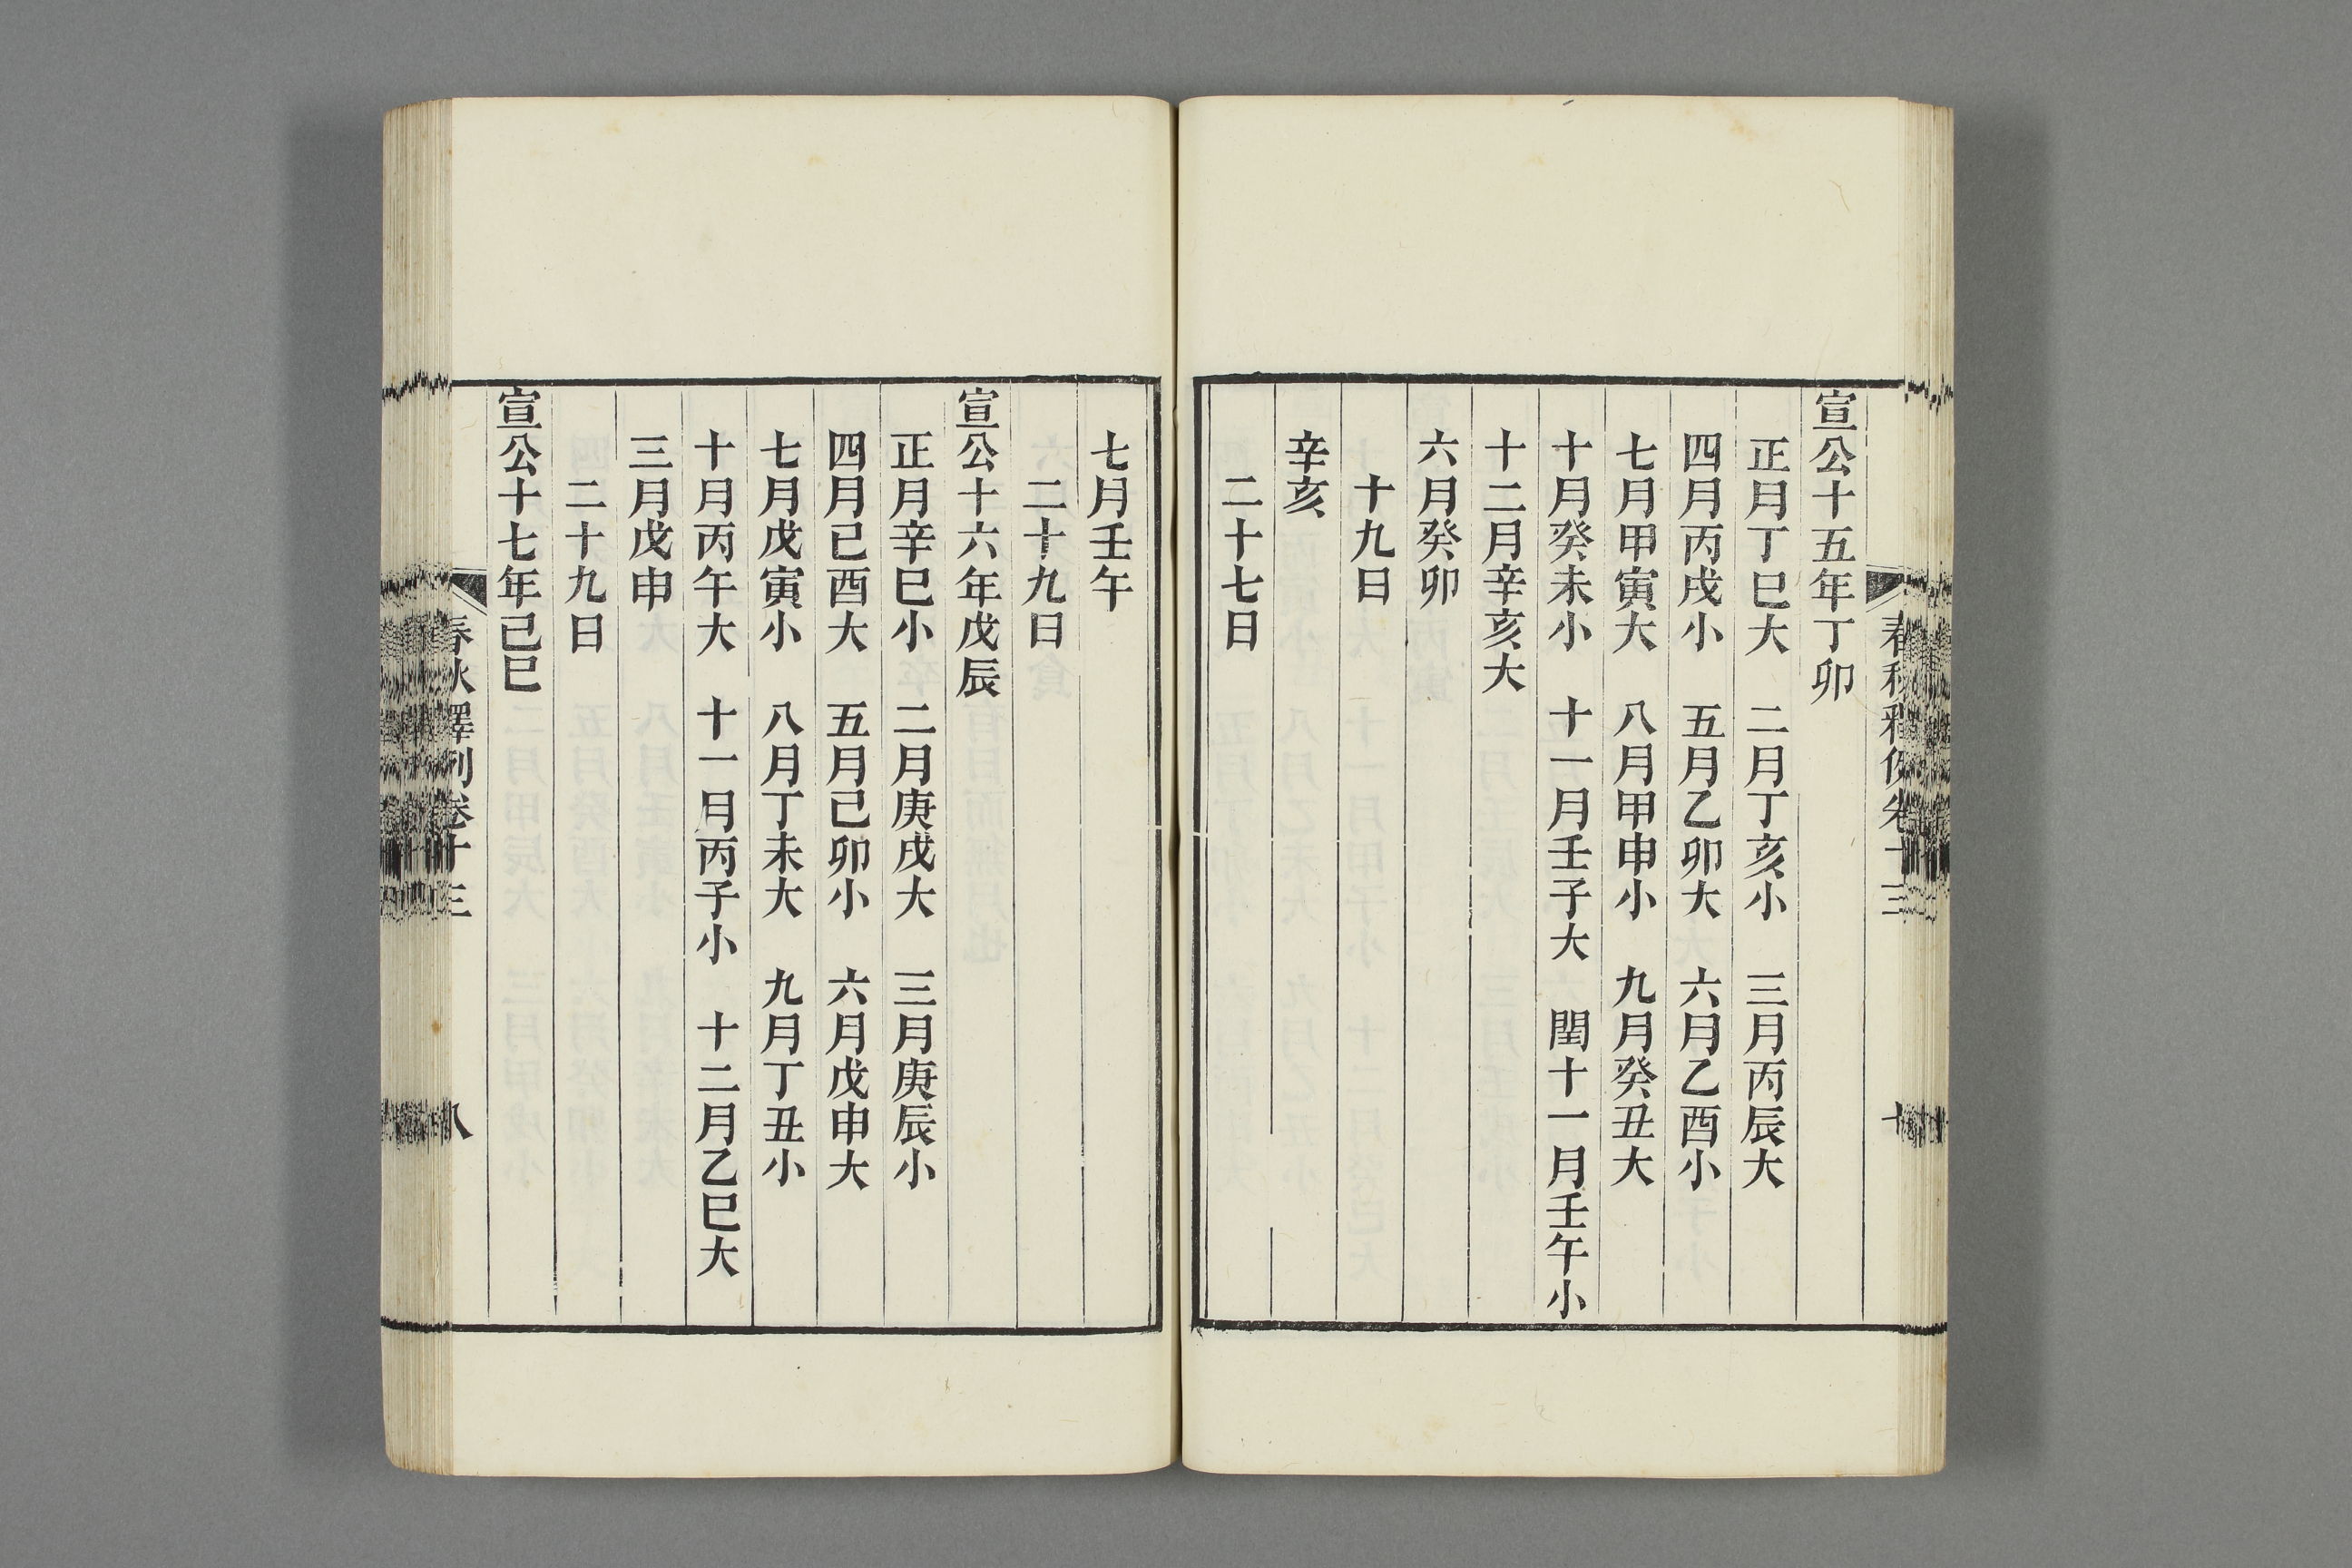 宣公十五年丁卯
正月丁巳大　二月丁亥小　三月丙辰大
四月丙戌小　五月乙卯大　六月乙酉小
七月甲寅大　八月甲申小　九月癸丑大
十月癸未小　十一月壬子大　閏十一月壬午小
十二月辛亥大
六月癸卯
十九日
辛亥
二十七日
七月壬午
二十九日
宣公十六年戊辰
正月辛巳小　二月庚戌大　三月庚辰小
四月己酉大　五月己卯小　六月戊申大
七月戊寅小　八月丁未大　九月丁丑小
十月丙午大　十一月丙子小　十二月乙巳大
三月戊申
二十九日
宣公十七年己巳
春秋釋例卷十三
八